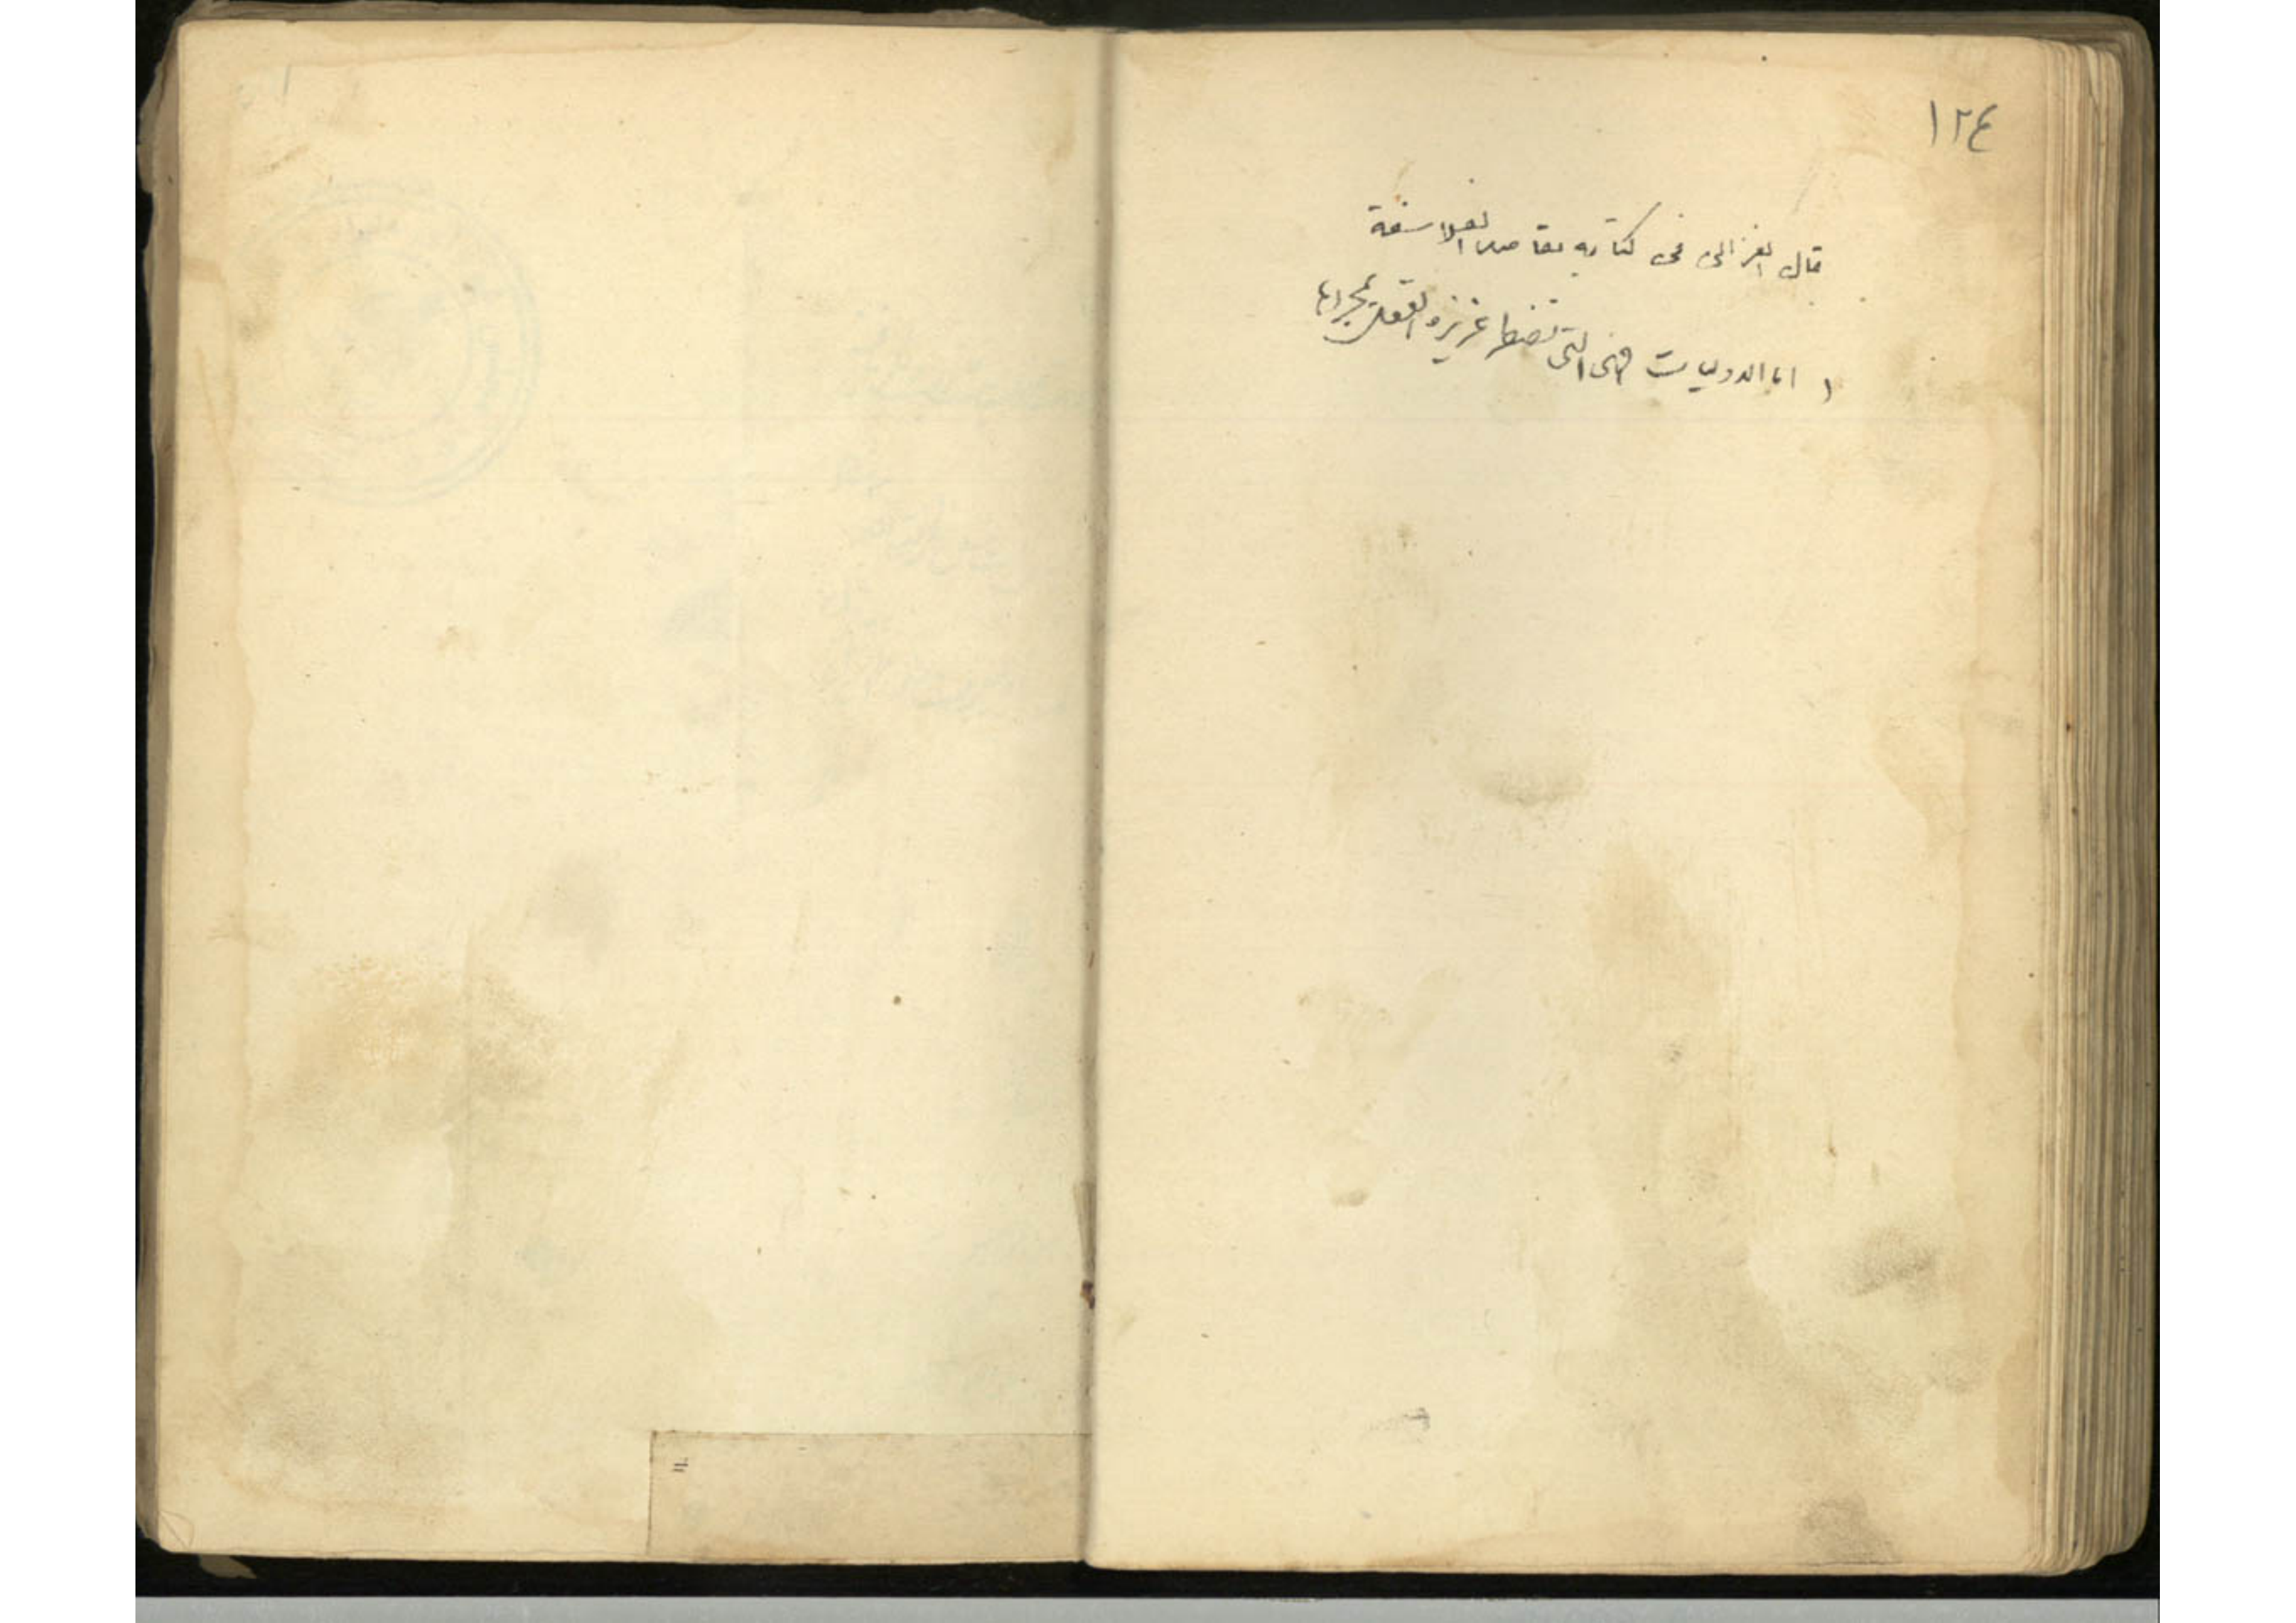 ١٢٤
قال الغزالى فى كتابه مقاصد الفلاسفة
١ اما الاوليات فهى التى تضطر غريزة العقل بمجردها